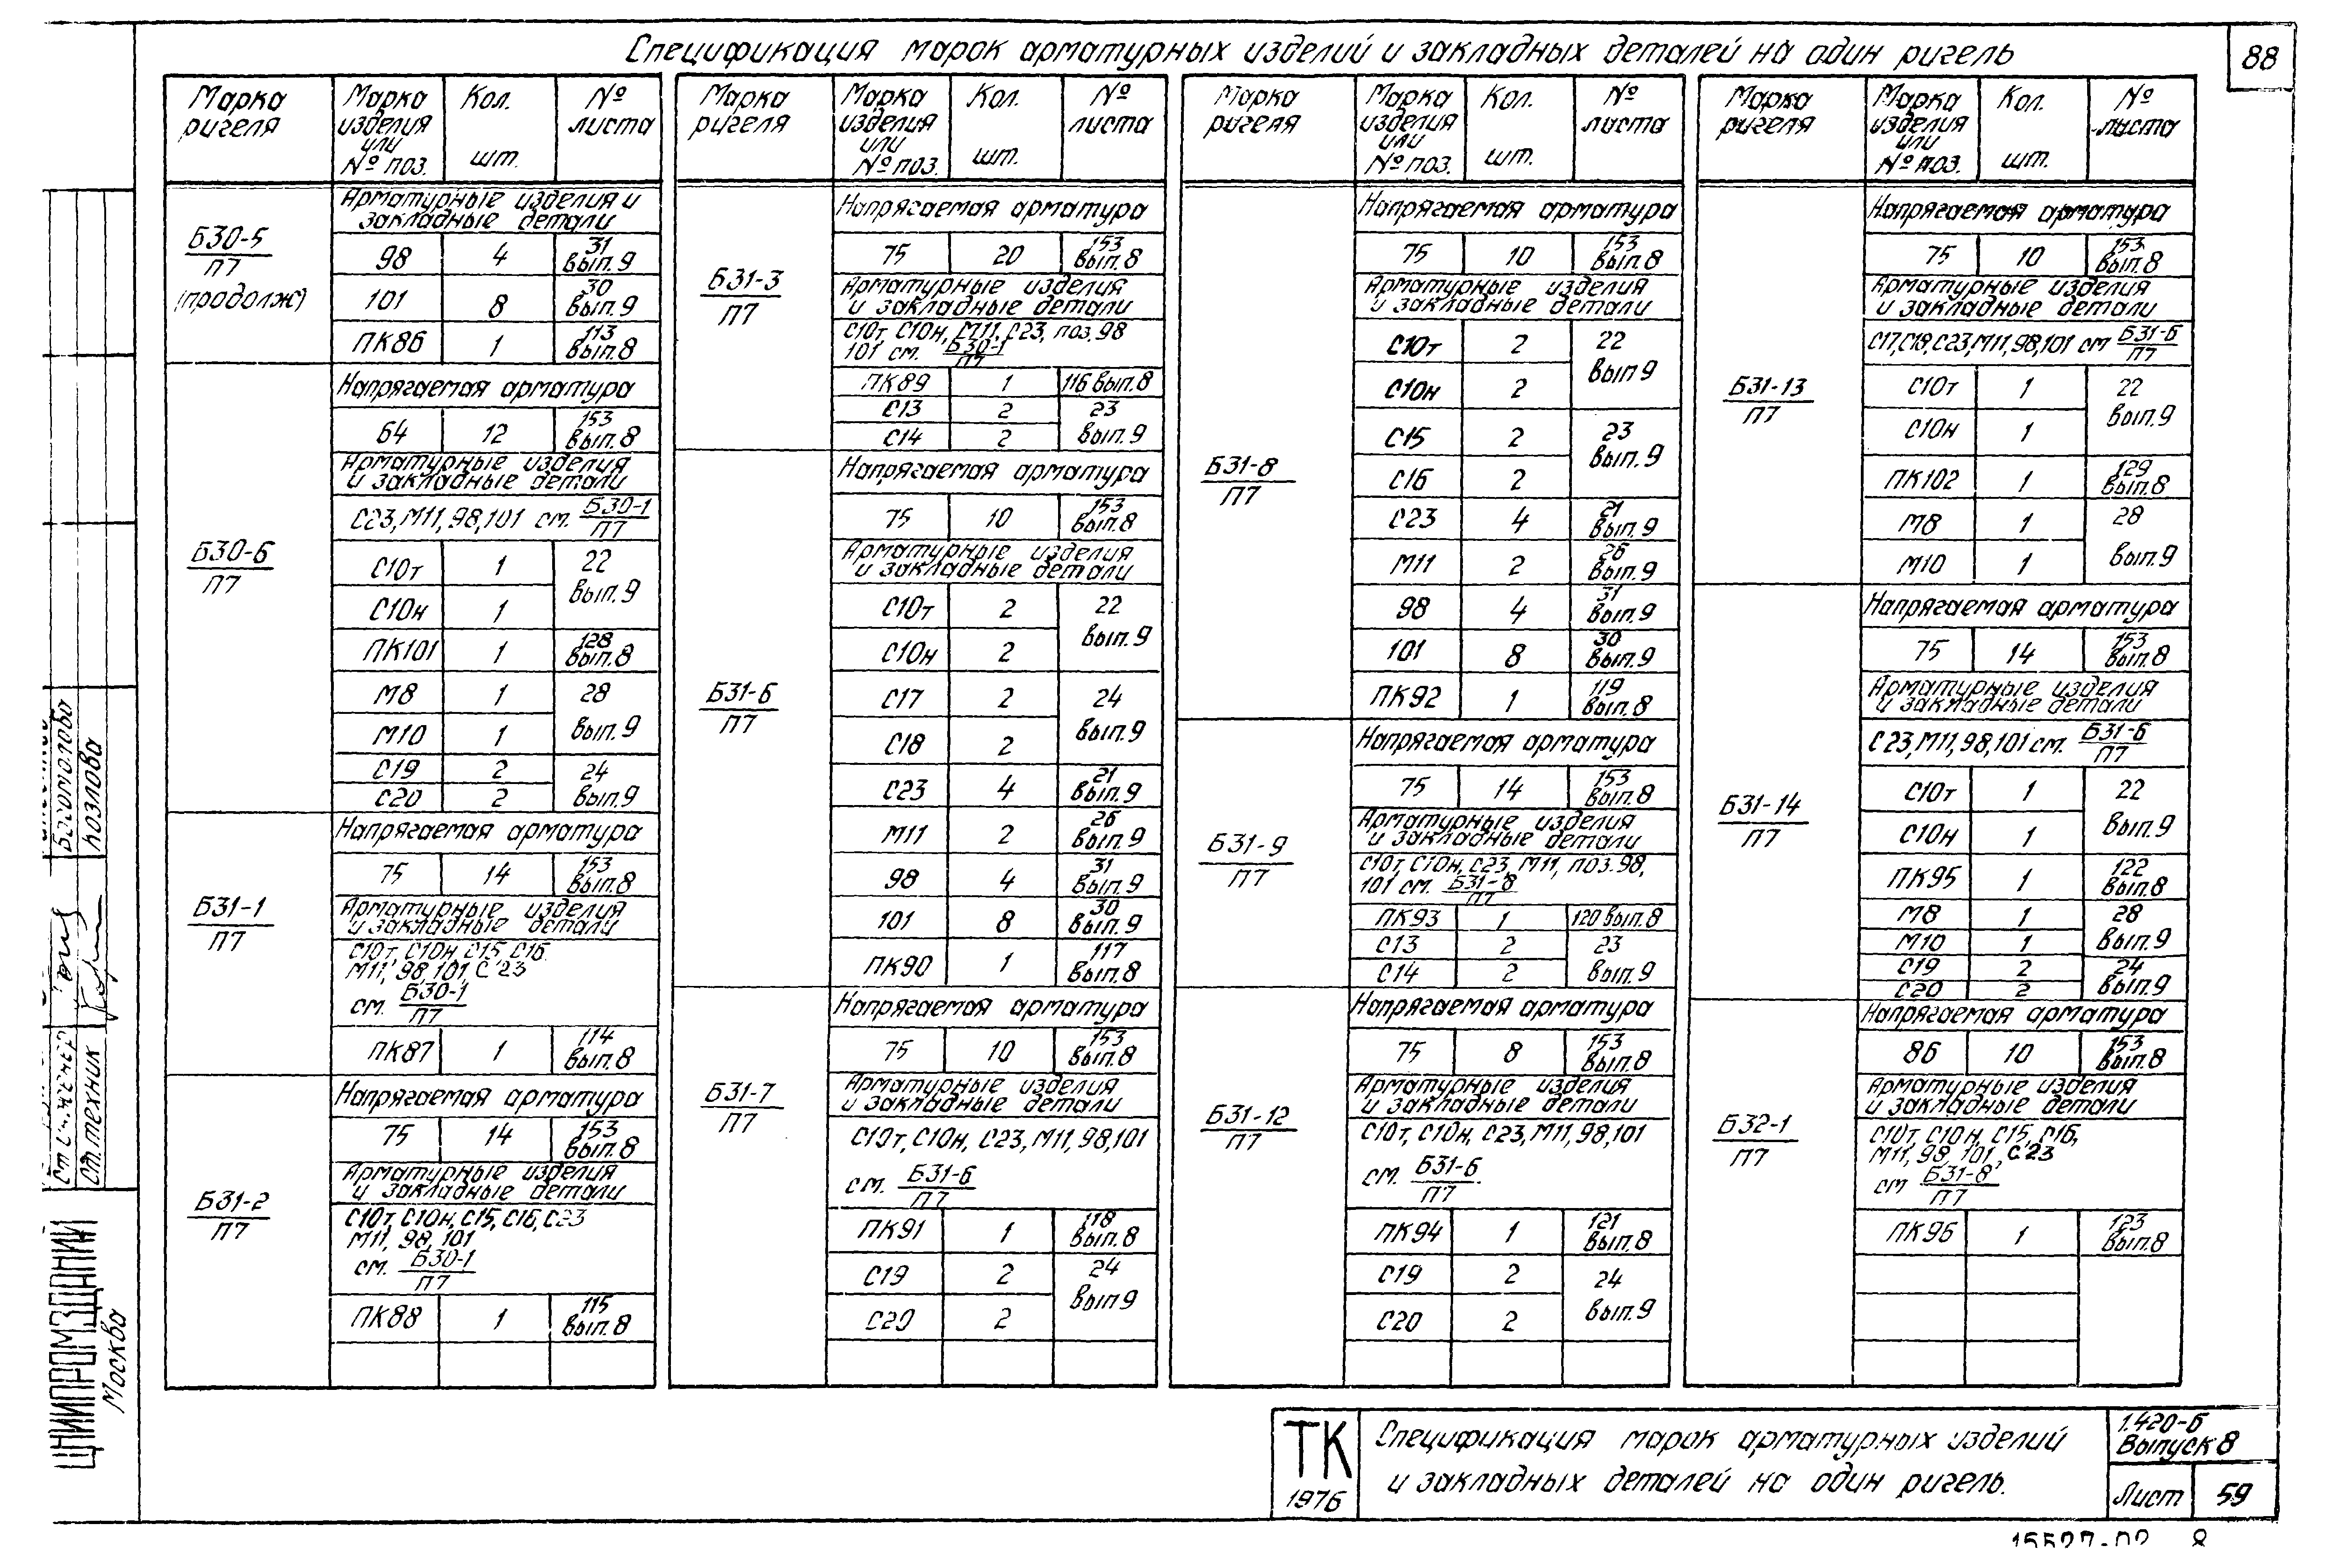 Спецификация марок арматурных изделий и закладных деталей на один ригель
88
Марка ригеля | Марка изделия или № поз. | Кол. шт. | № листа
Б30-5/П7 (продолж)
Арматурные изделия и закладные детали
98 | 4 | 31 вып.9
101 | 8 | 30 вып.9
ПК86 | 1 | 113 вып.8
Б30-6/П7
Напрягаемая арматура
64 | 12 | 153 вып.8
Арматурные изделия и закладные детали
С23, М11, 98, 101 см. Б30-1/П7
С10т | 1 | 22 вып.9
С10н | 1
ПК101 | 1 | 128 вып.8
М8 | 1 | 28 вып.9
М10 | 1
С19 | 2 | 24 вып.9
С20 | 2
Б31-1/П7
Напрягаемая арматура
75 | 14 | 153 вып.8
Арматурные изделия и закладные детали
С10т, С10н, С15, С16.
М11, 98, 101, С23
см. Б30-1/П7
ПК87 | 1 | 114 вып.8
Б31-2/П7
Напрягаемая арматура
75 | 14 | 153 вып.8
Арматурные изделия и закладные детали
С10т, С10н, С15, С16, С23
М11, 98, 101
см. Б30-1/П7
ПК88 | 1 | 115 вып.8
Марка ригеля | Марка изделия или № поз. | Кол. шт. | № листа
Б31-3/П7
Напрягаемая арматура
75 | 20 | 153 вып.8
Арматурные изделия и закладные детали
С10т, С10н, М11, С23, поз.98
101 см. Б30-1/П7
ПК89 | 1 | 116 вып.8
С13 | 2 | 23 вып.9
С14 | 2
Б31-6/П7
Напрягаемая арматура
75 | 10 | 153 вып.8
Арматурные изделия и закладные детали
С10т | 2 | 22 вып.9
С10н | 2
С17 | 2 | 24 вып.9
С18 | 2
С23 | 4 | 21 вып.9
М11 | 2 | 26 вып.9
98 | 4 | 31 вып.9
101 | 8 | 30 вып.9
ПК90 | 1 | 117 вып.8
Б31-7/П7
Напрягаемая арматура
75 | 10 | 153 вып.8
Арматурные изделия и закладные детали
С10т, С10н, С23, М11, 98, 101
см. Б31-6/П7
ПК91 | 1 | 118 вып.8
С19 | 2 | 24 вып9
С20 | 2
Марка ригеля | Марка изделия или № поз. | Кол. шт. | № листа
Б31-8/П7
Напрягаемая арматура
75 | 10 | 153 вып.8
Арматурные изделия и закладные детали
С10т | 2 | 22 вып9
С10н | 2
С15 | 2 | 23 вып.9
С16 | 2
С23 | 4 | 21 вып.9
М11 | 2 | 26 вып.9
98 | 4 | 31 вып.9
101 | 8 | 30 вып.9
ПК92 | 1 | 119 вып.8
Б31-9/П7
Напрягаемая арматура
75 | 14 | 153 вып.8
Арматурные изделия и закладные детали
С10т, С10н, С23, М11, поз.98,
101 см. Б31-8/П7
ПК93 | 1 | 120 вып.8
С13 | 2 | 23 вып.9
С14 | 2
Б31-12/П7
Напрягаемая арматура
75 | 8 | 153 вып.8
Арматурные изделия и закладные детали
С10т, С10н, С23, М11, 98, 101
см. Б31-6/П7
ПК94 | 1 | 121 вып.8
С19 | 2 | 24 вып.9
С20 | 2
Марка ригеля | Марка изделия или № поз. | Кол. шт. | № листа
Б31-13/П7
Напрягаемая арматура
75 | 10 | 153 вып.8
Арматурные изделия и закладные детали
С17, С18, С23, М11, 98, 101 см Б31-6/П7
С10т | 1 | 22 вып.9
С10н | 1
ПК102 | 1 | 129 вып.8
М8 | 1 | 28 вып.9
М10 | 1
Б31-14/П7
Напрягаемая арматура
75 | 14 | 153 вып.8
Арматурные изделия и закладные детали
С23, М11, 98, 101 см. Б31-6/П7
С10т | 1 | 22 вып.9
С10н | 1
ПК95 | 1 | 122 вып.8
М8 | 1 | 28 вып.9
М10 | 1
С19 | 2 | 24 вып.9
С20 | 2
Б32-1/П7
Напрягаемая арматура
86 | 10 | 153 вып.8
Арматурные изделия и закладные детали
С10т, С10н, С15, С16,
М11, 98, 101, С23
см Б31-8/П7
ПК96 | 1 | 123 вып.8
Богомолова
Козлова
Ст.техник
ЦНИИПРОМЗДАНИЙ
Москва
ТК
1976
Спецификация марок арматурных изделий
и закладных деталей на один ригель.
1.420-6
Выпуск 8
Лист 59